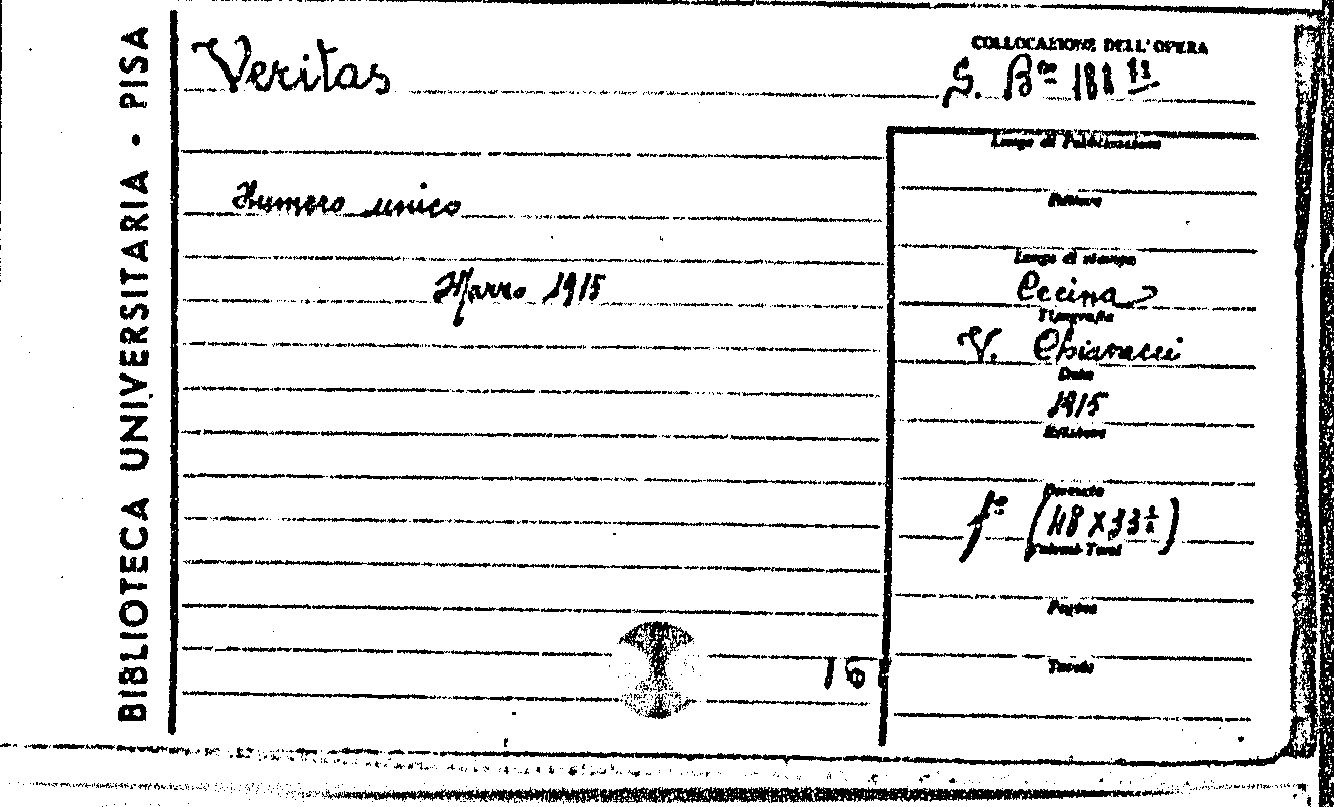 BIBLIOTECA UNIVERSITARIA · PISA
Veritas
COLLOCAZIONE DELL'OPERA
S. Bº 188
Numero unico
Marzo 1915
Luogo di Pubblicazione
Editore
Luogo di stampa
Cecina
Tipografia
V. Chiaracci
Data
1915
Edizione
Formato
fº (48 x 33 ½)
Volumi-Tomi
Pagine
Tavole